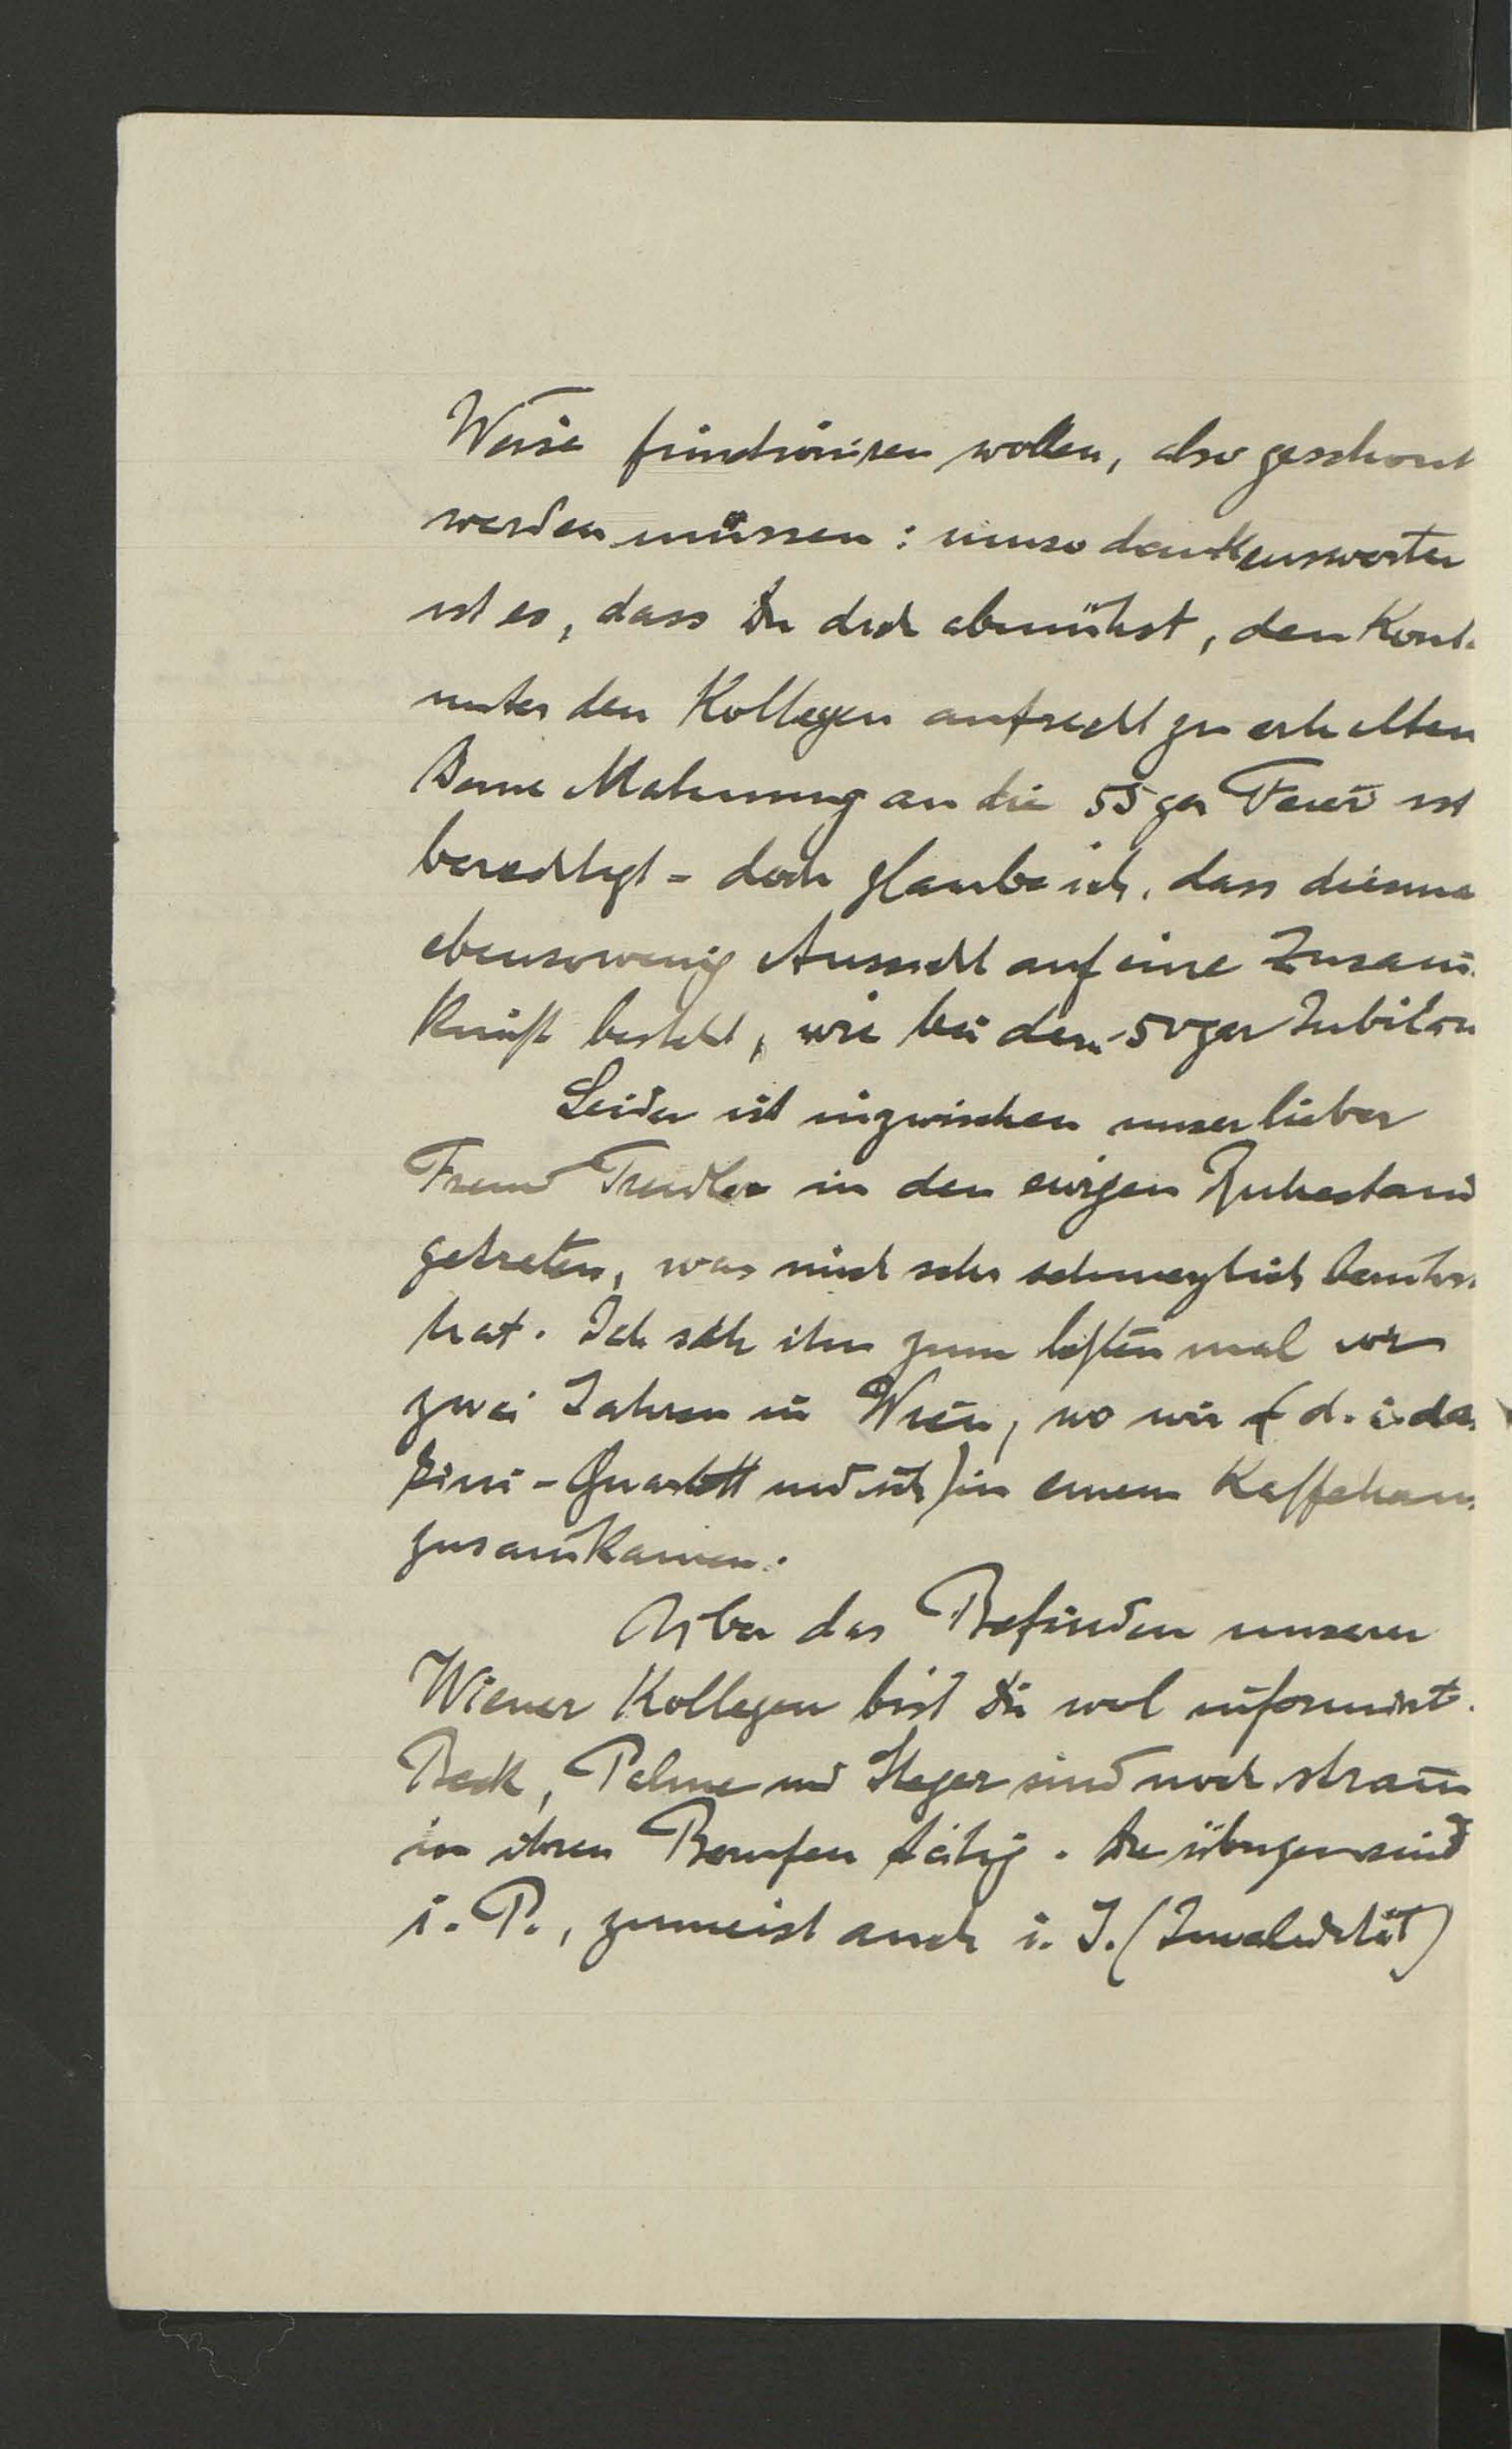 Weise funktioniren wollen, also geschont
werden müssen: umso dankenswerter
ist es, dass Du dich abmühst, den Kont.
unter den Kollegen aufrecht zu erhalten
Deine Mahnung an die 55ger Feier ist
berechtigt - doch glaube ich, dass diesma
ebensowenig Aussicht auf eine Zusam̅
kunft besteht, wie bei dem 50ger Jubiläu
Leider ist inzwischen unser lieber
Freund in den ewigen Ruhestand
getreten, was mich sehr schmerzlich berühr
hat. Ich sah ihn zum letzten mal vor
zwei Jahren in Wien, wo wir (d. i. da
-Quartett und ich) in einem Kaffehaus
zusam̅kamen.
Über das Befinden unserer
Wiener Kollegen bist Du wol informirt.
Beck, Palme und Heger sind noch stram̅
in ihren Berufen tätig. Die übrigen sind
i. P., zumeist auch i. I. (Invalidität)